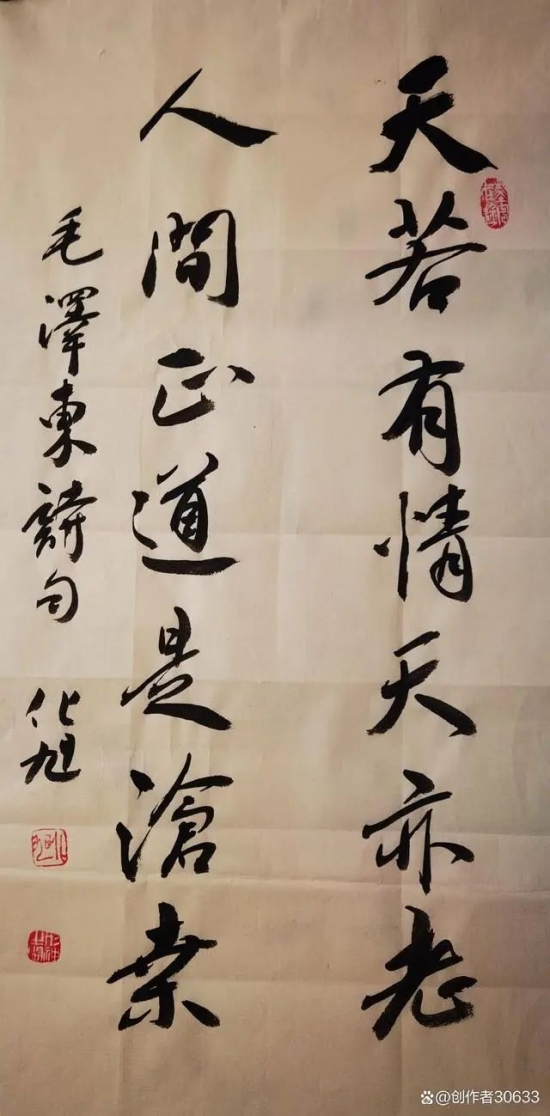 天若有情天亦老
人間正道是滄桑
毛澤東詩句
化旭
@创作者30633